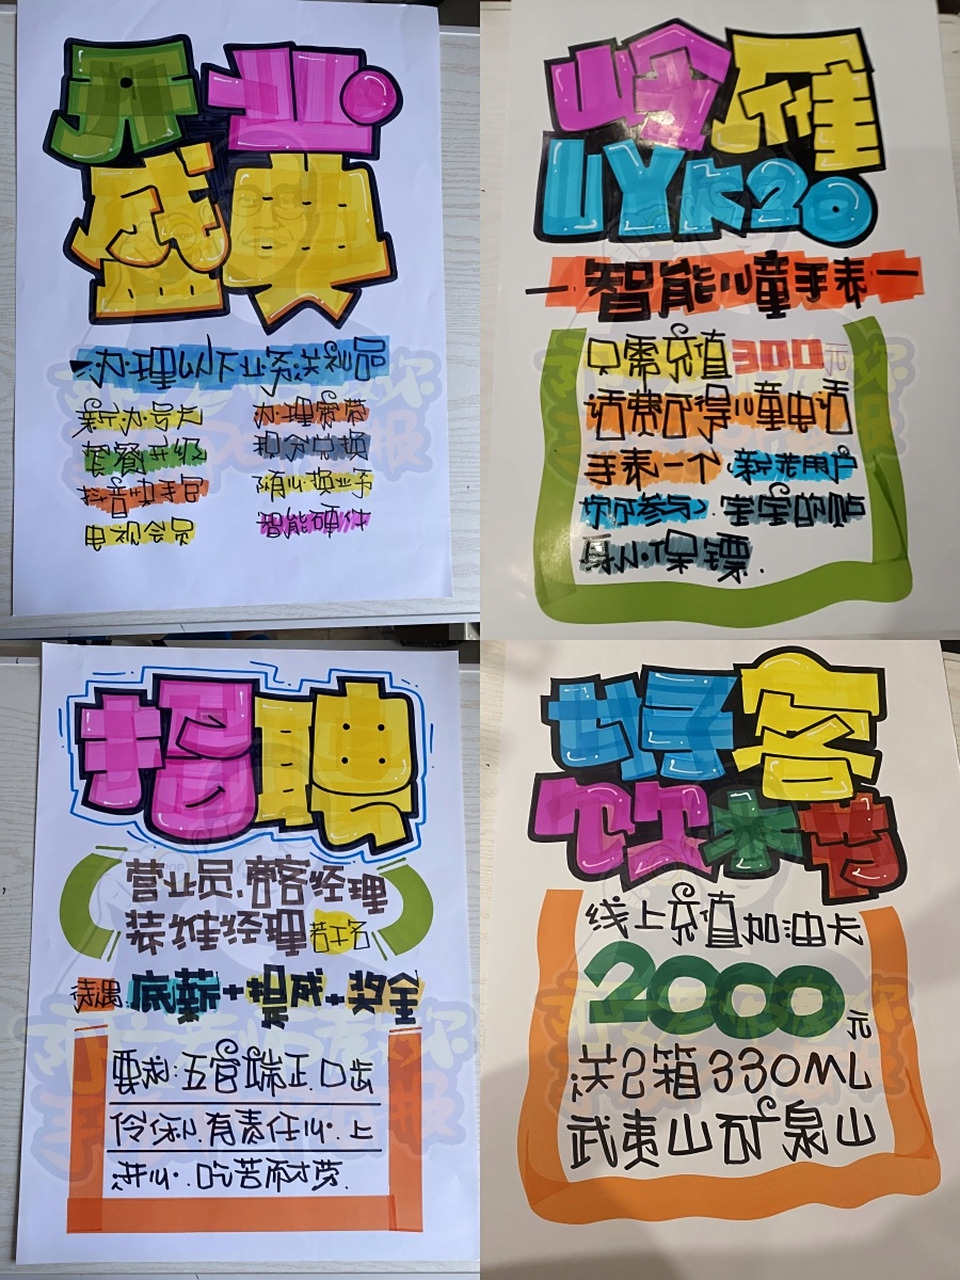 开业
盛典
办理以下业务送礼品
新办号卡
套餐升级
抖音快手包
电视会员
办理宽带
积分兑换
随心换业务
智能硬件
哈雀
UYK20
一智能儿童手表一
只需充值300元
话费可得儿童电话
手表一个 新老用户
均可参与.宝宝的贴
身小保镖.
招聘
营业员.商客经理
装维经理若干名
待遇:底薪+提成+奖金
要求:五官端正.口齿
伶俐.有责任心.上
进心.吃苦耐劳.
好客
饮水节
线上充值加油卡
2000元
送2箱330ML
武夷山矿泉山